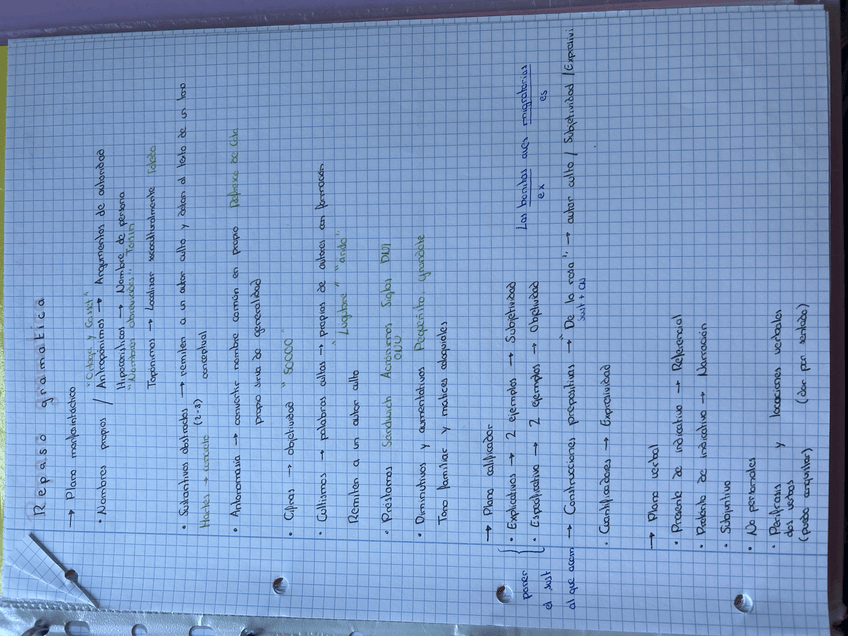 Repaso gramatica
→ Plano morfosintáctico
"Ortega y Gasset"
• Nombres propios / Antropónimos → Argumentos de autoridad
Hipocorísticos → Nombre de persona
"Nombres abreviados" Toñin
Topónimos → Localizar socioculturalmente Toledo
• Sustantivos abstractos → remiten a un autor culto y dotan al texto de un tono
(2-3) conceptual
• Antonomasia → convertir nombre común en propio
propio sirva de generalidad
• Cifras → objetividad "50000"
• Cultismos → palabras cultas → propias de autores con formación
Remiten a un autor culto "Lúgubre"
• Préstamos Sandwich Acrónimos Siglas DNI
ONU
• Diminutivos y aumentativos Pequeñito grandote
Tono familiar y matices coloquiales
→ Plano calificador
• Explicativos → 2 ejemplos → Subjetividad Las bonitas aves migratorias
• Especificativo → 2 ejemplos → Objetividad ex es
poner
el sust
al que acom → Construcciones prepositivas → "De la rosa" → autor culto / Subjetividad / Expresivi
sust + CN
• Cuantificadores → Expresividad
→ Plano verbal
• Presente de indicativo → Referencial
• Pretérito de indicativo → Narración
• Subjuntivo
• No personales
• Perífrasis y locuciones verbales
dos verbos (dar por sentado)
(puedo conquistar)